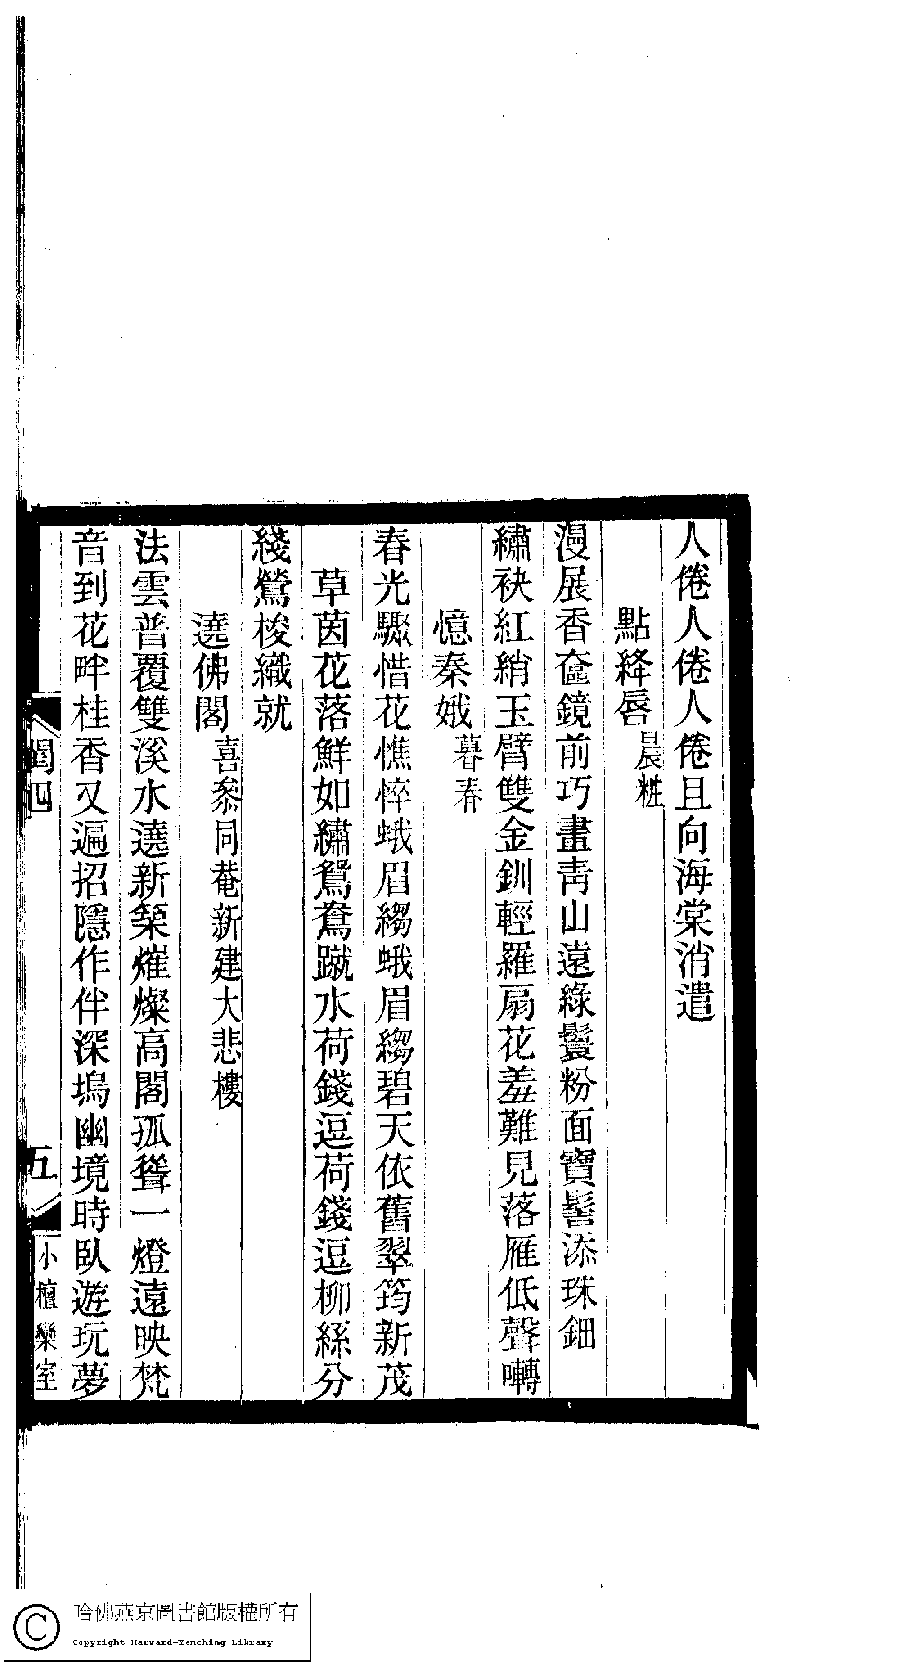 人倦人倦人倦且向海棠消遣
點絳唇晨糚
漫展香奩鏡前巧畫靑山遠綠鬟粉面寶髻添珠鈿
繡袂紅綃玉臂雙金釧輕羅扇花羞難見落雁低聲囀
憶秦娥暮春
春光驟惜花憔悴蛾眉縐蛾眉縐碧天依舊翠筠新茂
草茵花落鮮如繡鴛鴦蹴水荷錢逗荷錢逗柳絲分
綫鶯梭織就
遶佛閣喜叅同菴新建大悲樓
法雲普覆雙溪水遶新築熣燦高閣孤聳一燈遠映梵
音到花畔桂香又遍招隱作伴深塢幽境時臥遊玩夢
五
小檀欒室
哈佛燕京圖書館版權所有
Copyright Harvard-Yenching Library